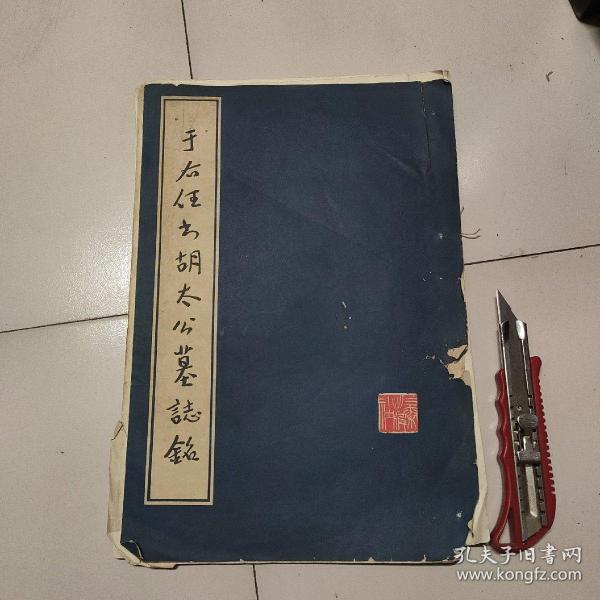 于右任书胡太公墓誌銘
孔夫子旧書网
www.kongfz.com